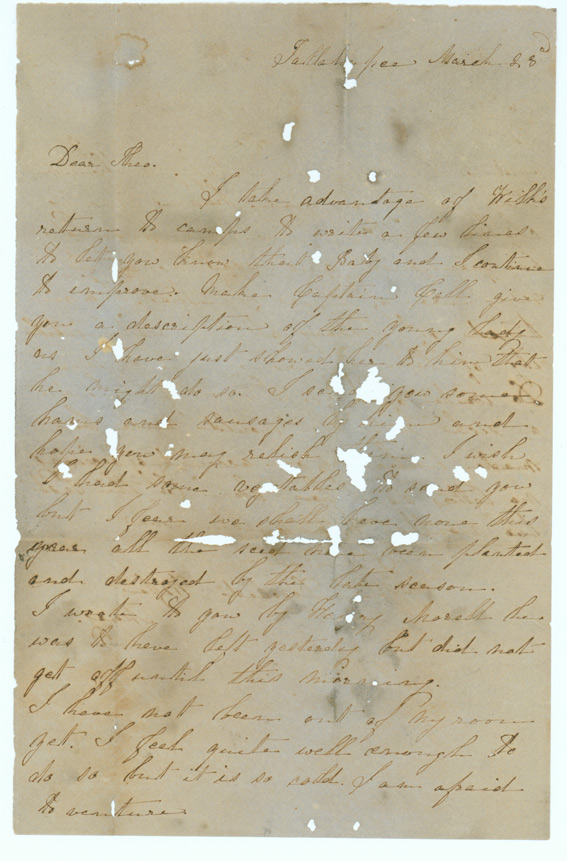 March 23d
Dear Theo.
I take advantage of Will's
return to camp to write a few lines
to let you know that Baby and I continue
to improve. Make Captain Call give
you a description of the young lady
as I have just showed her to him that
he might do so. I send you some
hams and sausages by him and
hope you may relish them. I wish
I had some vegetables to send you
but I fear we shall have none this
year all the seed have been planted
and destroyed by this late season.
I wrote to you by Morell he
was to have left yesterday but did not
get off until this morning.
I have not been out of my room
yet. I feel quite well enough to
do so but it is so cold. I am afraid
to venture